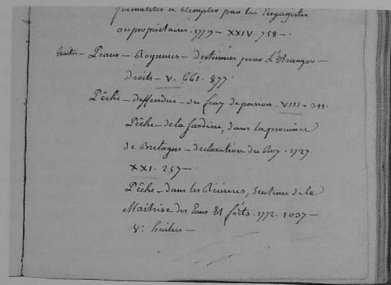 remplir par les Engagistes
ou propriétaires. 1779 - XXIV. 758 -
Peaux - Rognures - destinées pour l'Etranger -
Droits - V. 661. 877.
Pêche - deffendüe - du fray de poisson. VIII - 311.
Pêche - de la Sardine, dans la province
de Bretagne - declaration du Roy. 1727.
XXI. 257 -
Pêche - dans les Rivieres, Sentence de la
Maitrise des Eaux et forêts. 1772. 1037 -
V. huitres -